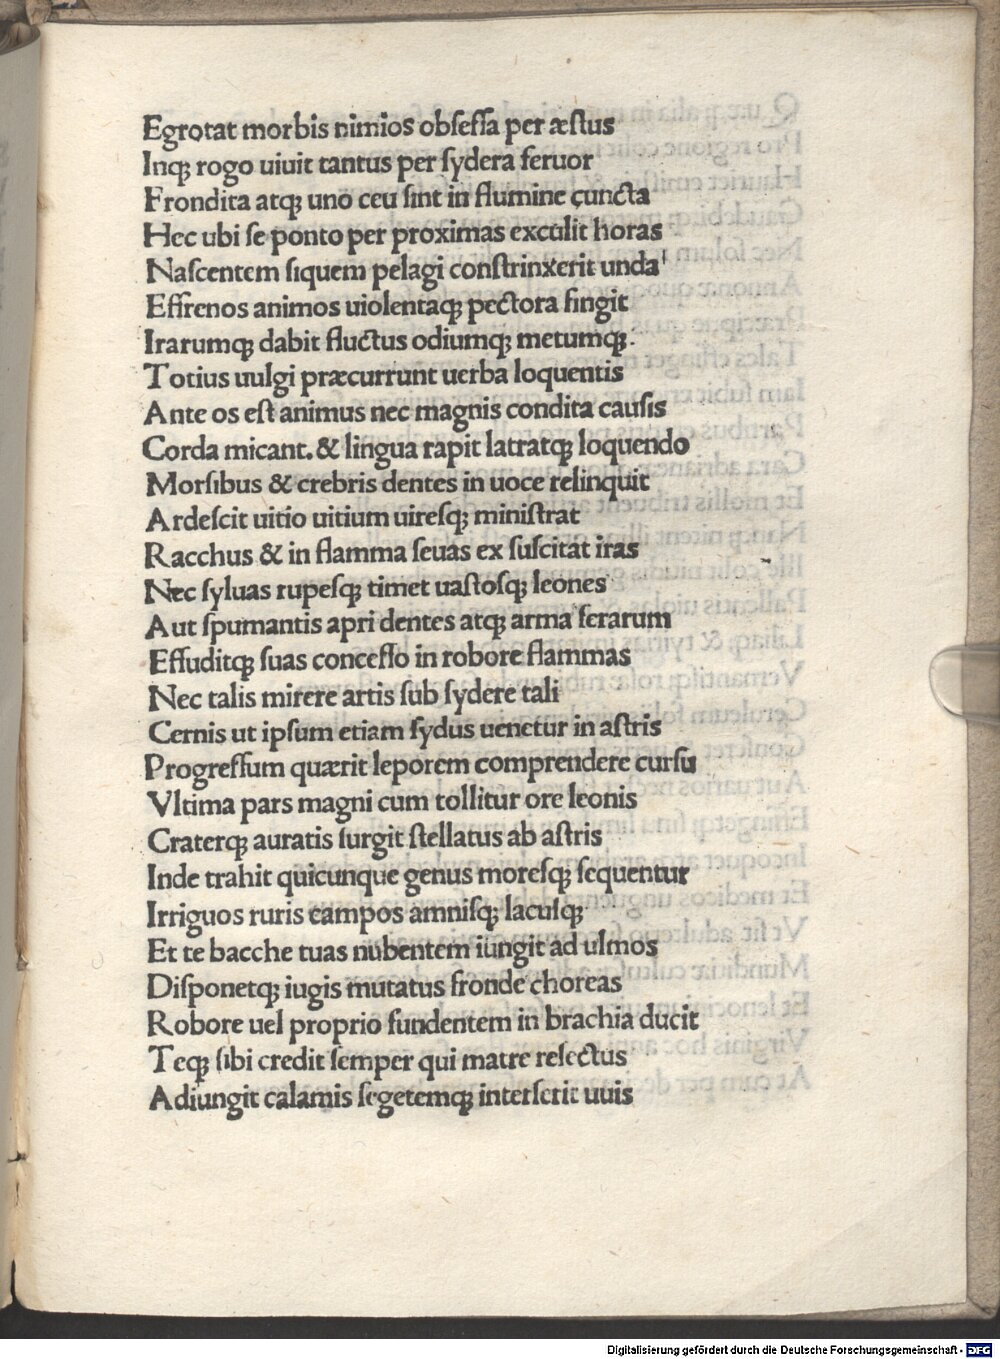 Egrotat morbis nimios obſeſſa per æſtus
Inqꝫ rogo uiuit tantus per ſydera feruor
Frondita atqꝫ uno ceu ſint in flumine cuncta
Hec ubi ſe ponto per proximas exculit horas
Naſcentem ſiquem pelagi conſtrinxerit unda
Effrenos animos uiolentaqꝫ pectora fingit
Irarumqꝫ dabit fluctus odiumqꝫ metumqꝫ.
Totius uulgi præcurrunt uerba loquentis
Ante os eſt animus nec magnis condita cauſis
Corda micant. & lingua rapit latratqꝫ loquendo
Morſibus & crebris dentes in uoce relinquit
Ardeſcit uitio uitium uireſqꝫ miniſtrat
Racchus & in flamma ſeuas ex ſuſcitat iras
Nec ſyluas rupeſqꝫ timet uaſtoſqꝫ leones
Aut ſpumantis apri dentes atqꝫ arma ferarum
Effuditqꝫ ſuas conceſſo in robore flammas
Nec talis mirere artis ſub ſydere tali
Cernis ut ipſum etiam ſydus uenetur in aſtris
Progreſſum quærit leporem comprendere curſu
Vltima pars magni cum tollitur ore leonis
Craterqꝫ auratis ſurgit ſtellatus ab aſtris
Inde trahit quicunque genus moreſqꝫ ſequentur
Irriguos ruris campos amniſqꝫ lacuſqꝫ
Et te bacche tuas nubentem iungit ad ulmos
Diſponetqꝫ iugis mutatus fronde choreas
Robore uel proprio fundentem in brachia ducit
Teqꝫ ſibi credit ſemper qui matre reſectus
Adiungit calamis ſegetemqꝫ interſerit uuis
Digitalisierung gefördert durch die Deutsche Forschungsgemeinschaft - DFG